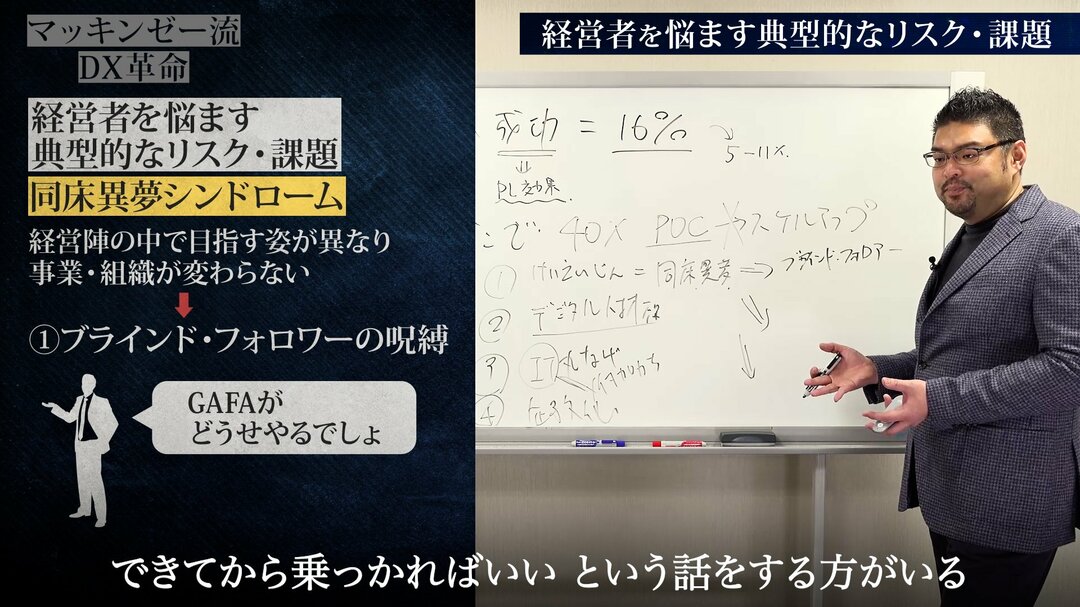 マッキンゼー流
DX革命
経営者を悩ます
典型的なリスク・課題
同床異夢シンドローム
経営陣の中で目指す姿が異なり
事業・組織が変わらない
①ブラインド・フォロワーの呪縛
GAFAが
どうせやるでしょ
経営者を悩ます典型的なリスク・課題
成功 = 16%
5-11%.
PL効果
40% POC やスケルアップ
① けいえいじん = 同床異夢 ⇒ ブラインド・フォロアー
② デジタル人材
IT
④
できてから乗っかればいい という話をする方がいる